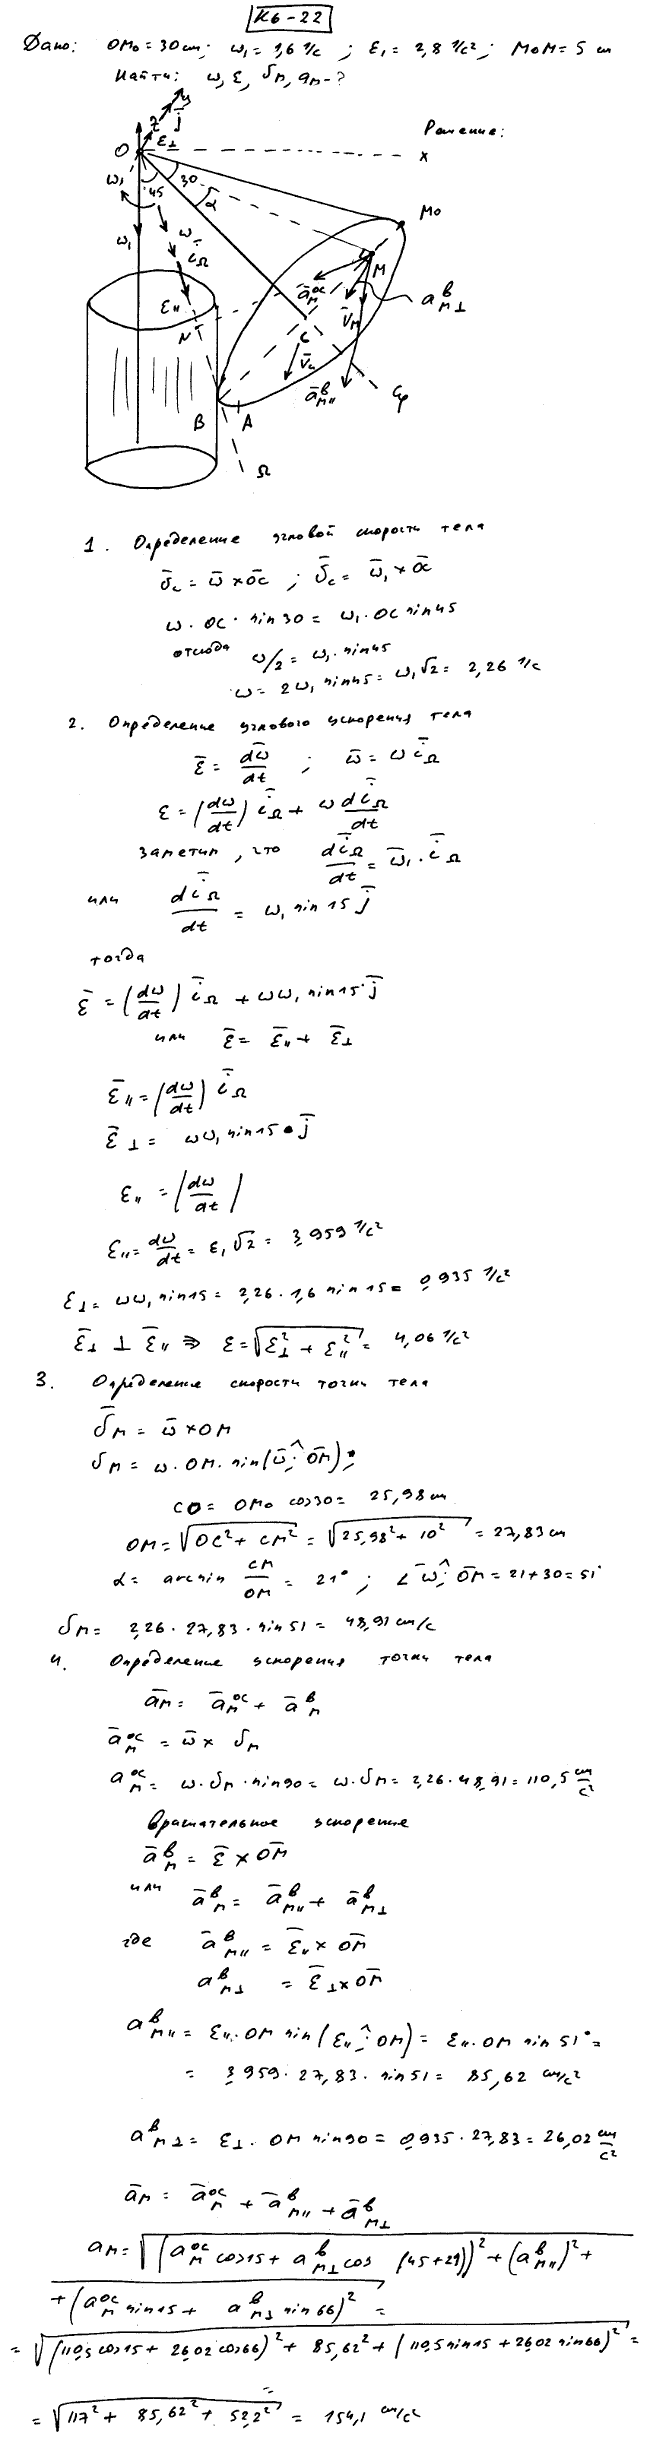 К6-22
Дано: OM₀ = 30 cm; ω₁ = 1,6 1/c; ε₁ = 2,8 1/c²; M₀M = 5 cm
Найти: ω, ε, υм, aм - ?
Решение:
z y j̄
O ε⊥ x
ω₁ 45 30 α M₀
ω₁ ω̄ īΩ M
ε₁₁ āᵒᶜм aᵇм⊥
N ῡм
C ῡc
āᵇм₁₁ Cφ
B A
Ω
1. Определение угловой скорости тела
ῡc = ω̄ × O̅C̅ ; ῡc = ω̄₁ × O̅C̅
ω · OC · sin30 = ω₁ · OC sin45
отсюда ω/2 = ω₁ · sin45
ω = 2ω₁ sin45 = ω₁√2 = 2,26 1/c
2. Определение углового ускорения тела
ε̄ = dω̄/dt ; ω̄ = ω īΩ
ε = (dω/dt) īΩ + ω dīΩ/dt
заметим, что dīΩ/dt = ω̄₁ · īΩ
или dīΩ/dt = ω₁ sin15 j̄
тогда
ε̄ = (dω/dt) īΩ + ωω₁ sin15 · j̄
или ε̄ = ε̄₁₁ + ε̄⊥
ε̄₁₁ = (dω/dt) īΩ
ε̄⊥ = ωω₁ sin15 · j̄
ε₁₁ = |dω/dt|
ε₁₁ = dω/dt = ε₁√2 = 3,959 1/c²
ε⊥ = ωω₁ sin15 = 2,26 · 1,6 sin15 = 0,935 1/c²
ε̄⊥ ⊥ ε̄₁₁ ⇒ ε = √(ε²⊥ + ε²₁₁) = 4,06 1/c²
3. Определение скорости точки тела
ῡм = ω̄ × OM
υм = ω · OM · sin(ω̄;^O̅M̅);
CO = OM₀ cos30 = 25,98 cm
OM = √(OC² + CM²) = √(25,98² + 10²) = 27,83 cm
α = arcsin CM/OM = 21° ; ∠ω̄;^O̅M̅ = 21+30 = 51°
υм = 2,26 · 27,83 · sin51 = 48,91 cm/c
4. Определение ускорения точки тела
āм = āᵒᶜм + āᵇм
āᵒᶜм = ω̄ × υм
aᵒᶜм = ω · υм · sin90 = ω · υм = 2,26 · 48,91 = 110,5 cm/c²
Вращательное ускорение
āᵇм = ε̄ × O̅M̅
или āᵇм = āᵇм₁₁ + āᵇм⊥
где āᵇм₁₁ = ε̄₁₁ × O̅M̅
aᵇм⊥ = ε̄⊥ × O̅M̅
aᵇм₁₁ = ε₁₁ · OM sin(ε₁₁;^OM) = ε₁₁ · OM sin51° =
= 3,959 · 27,83 · sin51 = 85,62 cm/c²
aᵇм⊥ = ε⊥ · OM sin90 = 0,935 · 27,83 = 26,02 cm/c²
āм = āᵒᶜм + āᵇм₁₁ + āᵇм⊥
aм = √((aᵒᶜм cos15 + aᵇм⊥ cos (45+21))² + (aᵇм₁₁)² +
+ (aᵒᶜм sin15 + aᵇм⊥ sin66)² =
= √((110,5 cos15 + 26,02 cos66)² + 85,62² + (110,5 sin15 + 26,02 sin66)² =
= √(117² + 85,62² + 52,2²) = 154,1 cm/c²